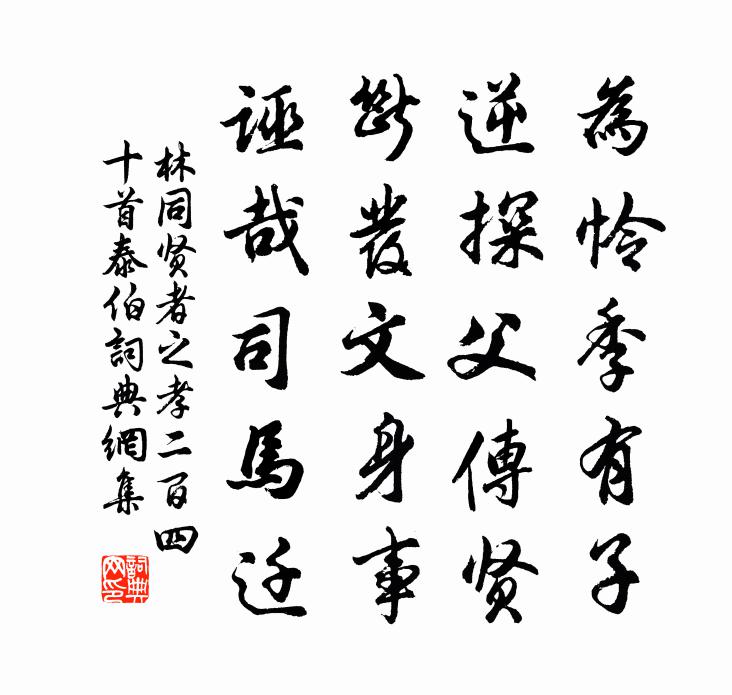 為怜季有子
逆探父傳贤
断發文身事
誣哉司馬迁
林同贤者之孝二百四
十首泰伯詞典網集
詞典网印